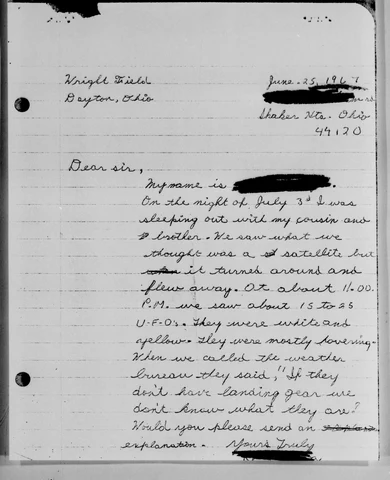 Wright Field
June. 25, 196
Dayton, Ohio
Shaker Hts. Ohio
44120
Dear sir,
My name is
On the night of July 3d I was
sleeping out with my cousin and
brother. We saw what we
thought was a satellite but
it turned around and
flew away. At about 11:00.
P.M. we saw about 15 to 25
U-F-O's. They were white and
yellow. They were mostly hovering.
When we called the weather
bureau they said, "If they
don't have landing gear we
don't know what they are?
Would you please send an
explanation. Yours Truly